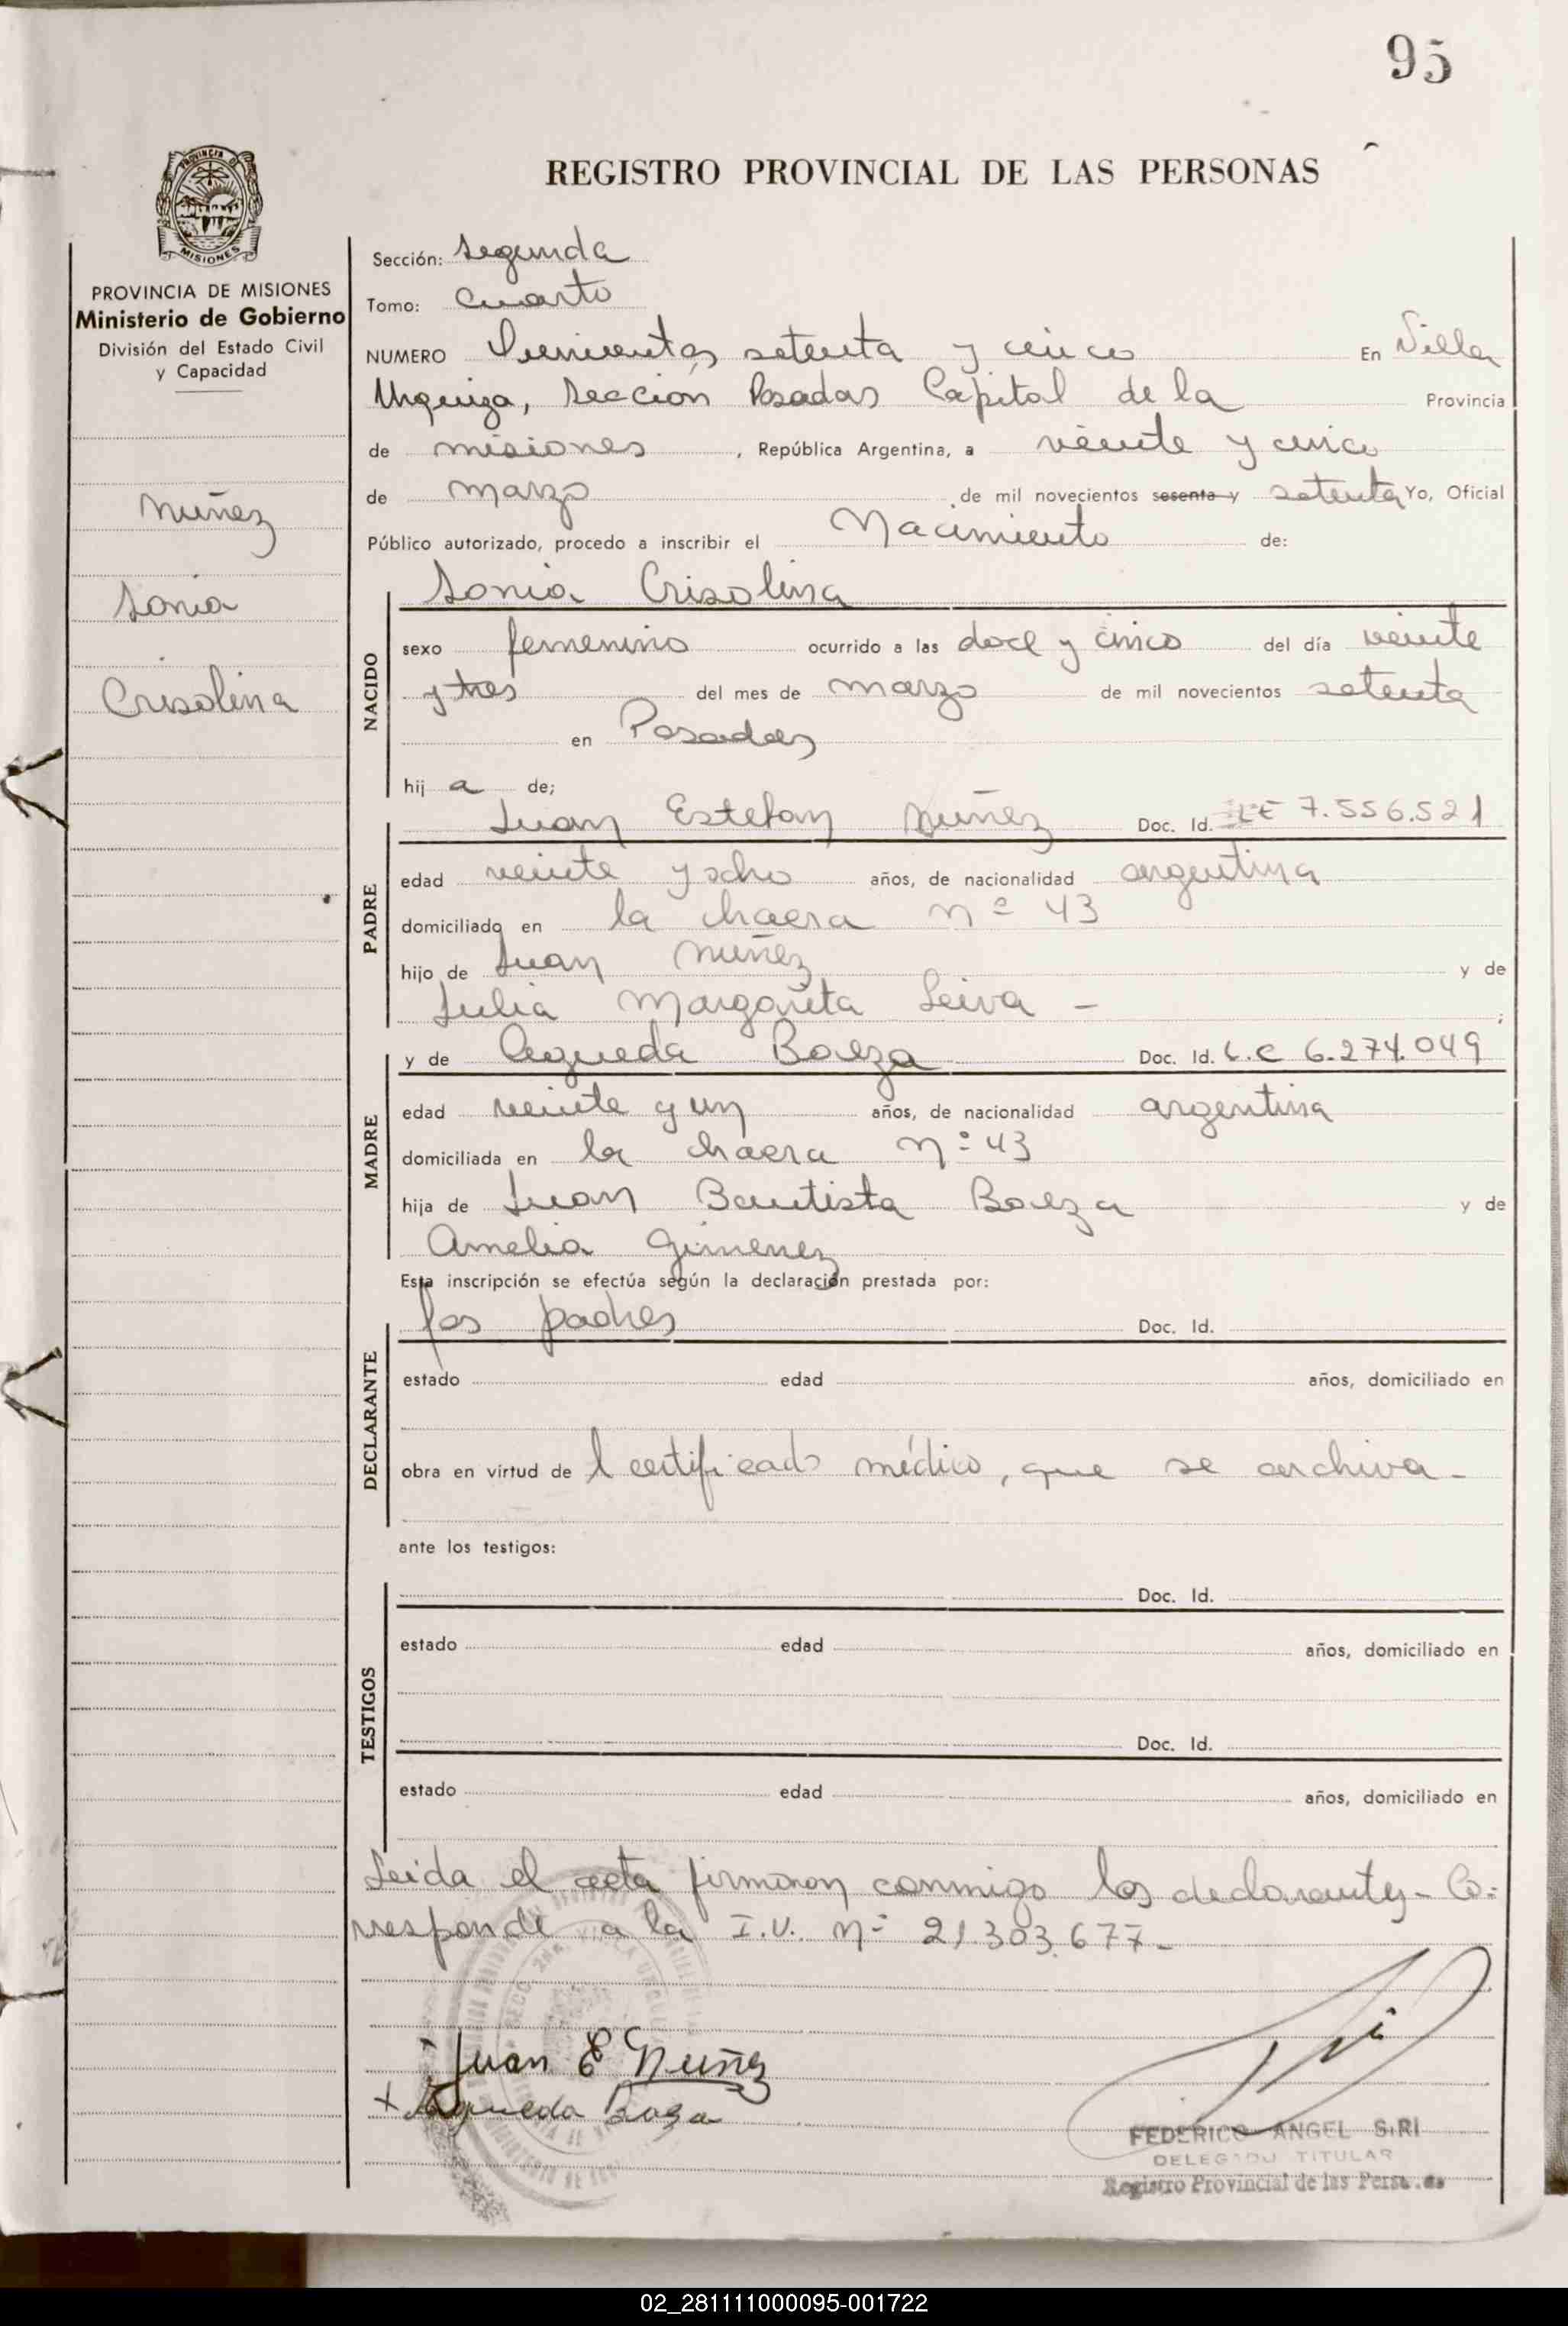 95
REGISTRO PROVINCIAL DE LAS PERSONAS
PROVINCIA DE
MISIONES
PROVINCIA DE MISIONES
Ministerio de Gobierno
División del Estado Civil
y Capacidad
Nuñez
Sonia
Crisolina
Sección: Segunda
Tomo: Cuarto
NUMERO setenta y cinco En Villa
Urquiza, Sección Posadas Capital de la Provincia
de misiones, República Argentina, a veinte y cinco
de marzo de mil novecientos sesenta y setenta Yo, Oficial
Público autorizado, procedo a inscribir el Nacimiento de:
Sonia Crisolina
NACIDO
sexo femenino ocurrido a las doce y cinco del día veinte
y tres del mes de marzo de mil novecientos setenta
en Posadas
hij a de;
PADRE
Juan Esteban Nuñez Doc. Id. LE 7.556.521
edad veinte y ocho años, de nacionalidad argentina
domiciliado en la chacra nº 43
hijo de Juan Nuñez y de
Julia Margarita Leiva -;
MADRE
y de Agueda Baeza Doc. Id. L.C 6.274.049
edad veinte y un años, de nacionalidad argentina
domiciliada en la chacra nº 43
hija de Juan Bautista Baeza y de
Amelia Gimenez
Esta inscripción se efectúa según la declaración prestada por:
DECLARANTE
los padres Doc. Id.
estado edad años, domiciliado en
obra en virtud de l certificado médico, que se archiva-
ante los testigos:
TESTIGOS
Doc. Id.
estado edad años, domiciliado en
Doc. Id.
estado edad años, domiciliado en
Leida el acta firmaron conmigo los declarantes- Co=
rresponde a la I.V. nº 21.303.677-
Juan E Nuñez
x Agueda Baeza
FEDERICO ANGEL SIRI
DELEGADO TITULAR
Registro Provincial de las Personas
02_281111000095-001722